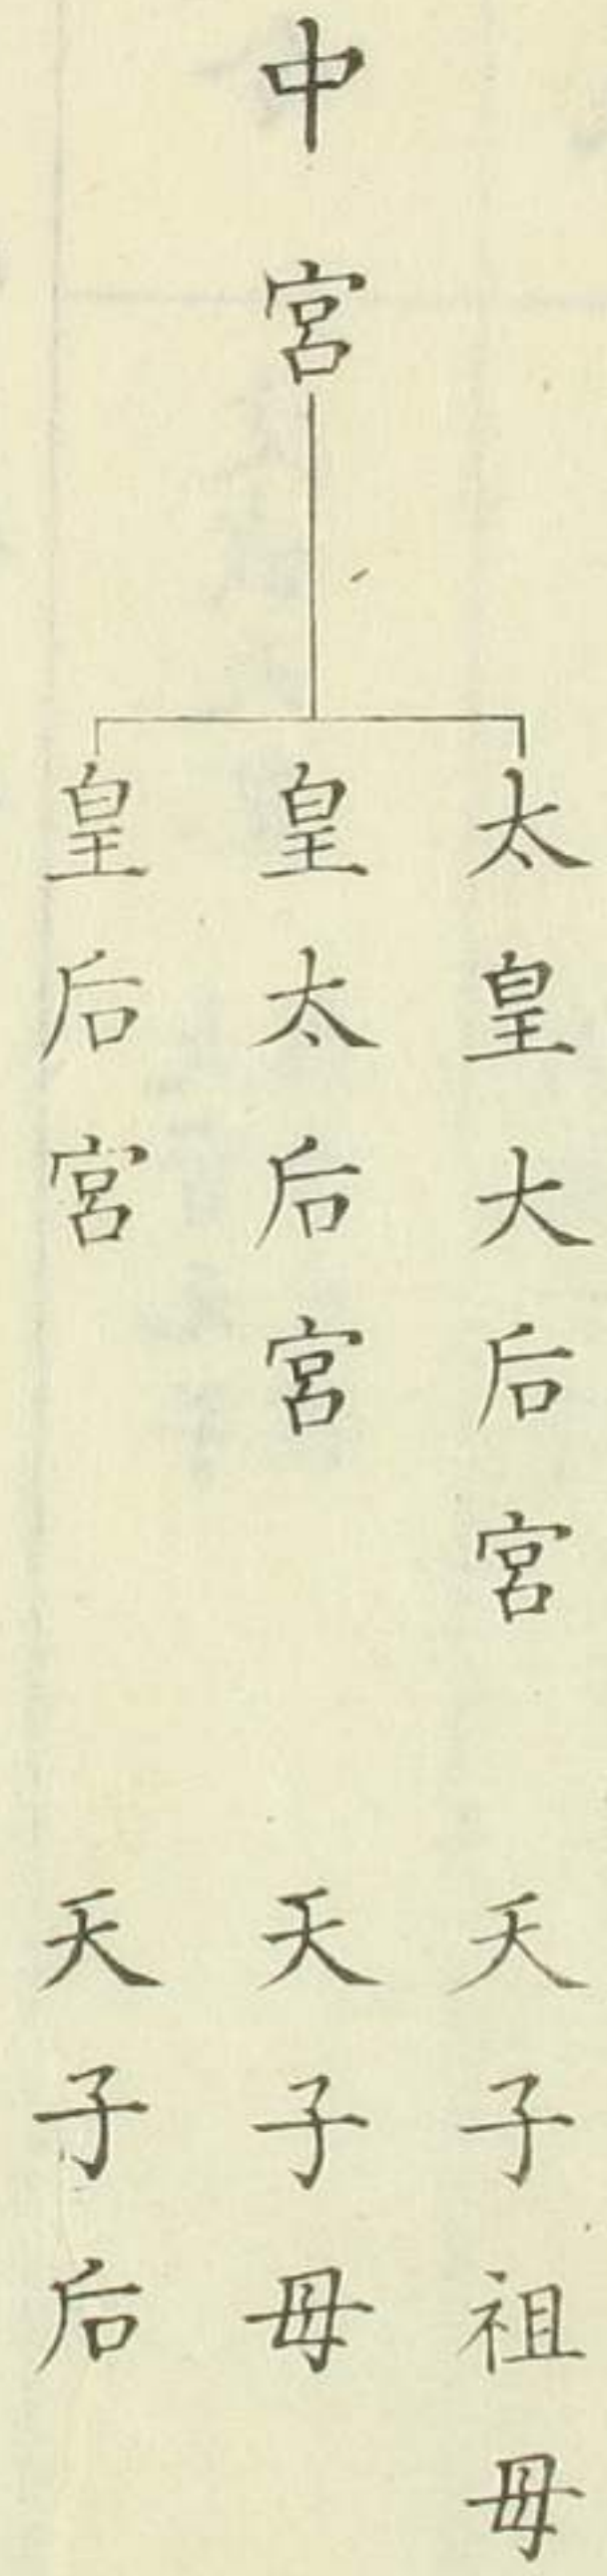 中宮
太皇大后宮 天子祖母
皇太后宮 天子母
皇后宮 天子后